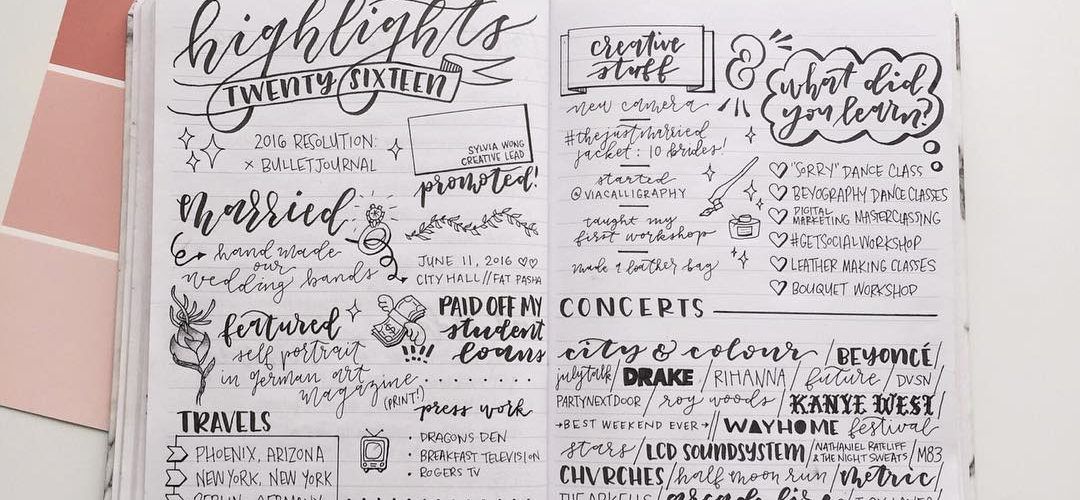 highlights
TWENTY SIXTEEN
2016 RESOLUTION:
× BULLETJOURNAL
SYLVIA WONG
CREATIVE LEAD
promoted!
married
hand made
our
wedding bands
JUNE 11, 2016 ♡♡
CITY HALL // FAT PASHA
featured
self portrait
in german art
magazine
(PRINT!)
PAID OFF MY
student
loans
!!!!
TRAVELS
PHOENIX, ARIZONA
NEW YORK, NEW YORK
BERLIN, GERMANY
press work
• DRAGONS DEN
• BREAKFAST TELEVISION
• ROGERS TV
creative
stuff
&
what did
you learn?
new camera
#thejustmarried
jacket: 10 brides!
started
@VIACALLIGRAPHY
taught my
first workshop
made 1 leather bag
♡ "SORRY" DANCE CLASS
♡ BEYOGRAPHY DANCE CLASSES
♡ DIGITAL MARKETING MASTERCLASSING
♡ #GETSOCIALWORKSHOP
♡ LEATHER MAKING CLASSES
♡ BOUQUET WORKSHOP
CONCERTS
city & colour / BEYONCÉ /
julytalk / DRAKE / RIHANNA / future / DVSN /
PARTYNEXTDOOR / roy woods / KANYE WEST /
→BEST WEEKEND EVER→ // WAYHOME festival
stars / LCD SOUNDSYSTEM / NATHANIEL RATELIFF & THE NIGHT SWEATS / M83
CHVRCHES / half moon run / metric /
THE ARKELLS /